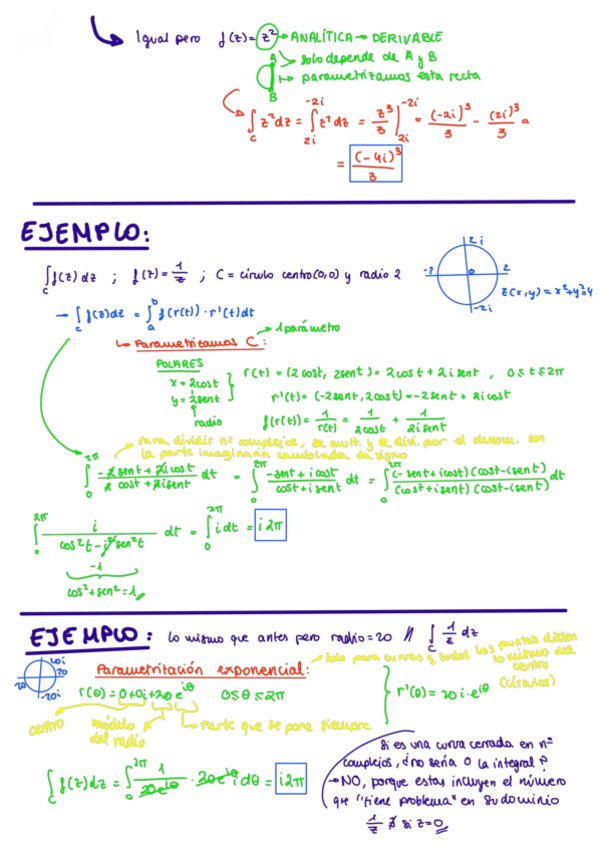 Igual pero f(z)= z² → ANALÍTICA → DERIVABLE
A
solo depende de A y B
parametrizamos esta recta
B
∫_c z²dz = ∫_{2i}^{-2i} z²dz = z³/3 |_{2i}^{-2i} = (-2i)³/3 - (2i)³/3 =
= (-4i)³/3
EJEMPLO:
∫_c f(z)dz ; f(z)= 1/z ; C = círculo centro(0,0) y radio 2
2i
-2 0 2
-2i
z(x,y) = x²+y²=4
→ ∫_c f(z)dz = ∫_a^b f(r(t))·r'(t)dt
↳ Parametrizamos C: → 1 parámetro
POLARES
x = 2cost
y = 2sent
radio
r(t) = (2cost, 2sent) = 2cost + 2isent , 0≤t≤2π
r'(t) = (-2sent, 2cost) = -2sent + 2icost
f(r(t)) = 1/r(t) = 1/2cost + 1/2isent
Para dividir nº complejos, se mult. y se divi. por el denom. con
la parte imaginaria cambiada de signo
∫_0^{2π} (-2sent + 2icost)/(2cost + 2isent) dt = ∫_0^{2π} (-sent + icost)/(cost + isent) dt = ∫_0^{2π} (-sent+icost)(cost-isent)/(cost+isent)(cost-isent) dt
∫_0^{2π} i/(cos²t - i²sen²t) dt = ∫_0^{2π} i dt = i2π
-1
cos²+sen²=1
EJEMPLO: lo mismo que antes pero radio=20 // ∫_c 1/z dz
20i
20 20
-20i
Parametrización exponencial:
→ Solo para curvas y todos los puntos disten
lo mismo del
centro
(círculos)
r(θ) = 0+0i+20e^{iθ} 0≤θ≤2π
r'(θ) = 20i·e^{iθ}
centro
módelo
del radio
Parte que se pone siempre
∫_c f(z)dz = ∫_0^{2π} 1/20e^{iθ} · 20e^{iθ} i dθ = i2π
Si es una curva cerrada en nº
complejos, ¿no sería 0 la integral?
→ NO, porque estas incluyen el número
que "tiene problema" en su dominio
1/z ∄ si z=0